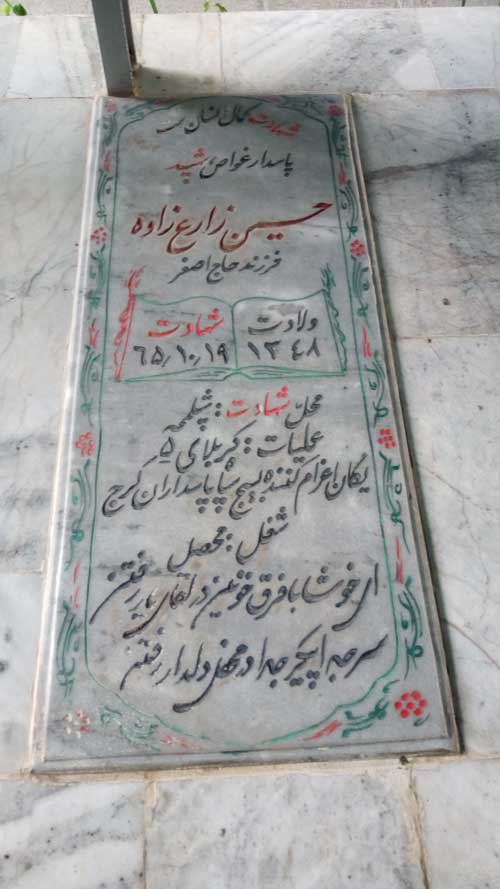 شهادت کمال انسان است
پاسدار غواص شهید
حسین زارع زاده
فرزند حاج اصغر
ولادت شهادت
۱۳۴۸ ۶۵/۱۰/۱۹
محل شهادت : شلمچه
عملیات : کربلای ۵
یگان اعزام کننده بسیج سپاه پاسداران کرج
شغل : محصل
ای خوشا با فرق خونین در لقای یار رفتن
سر جدا پیکر جدا در محفل دلدار رفتن